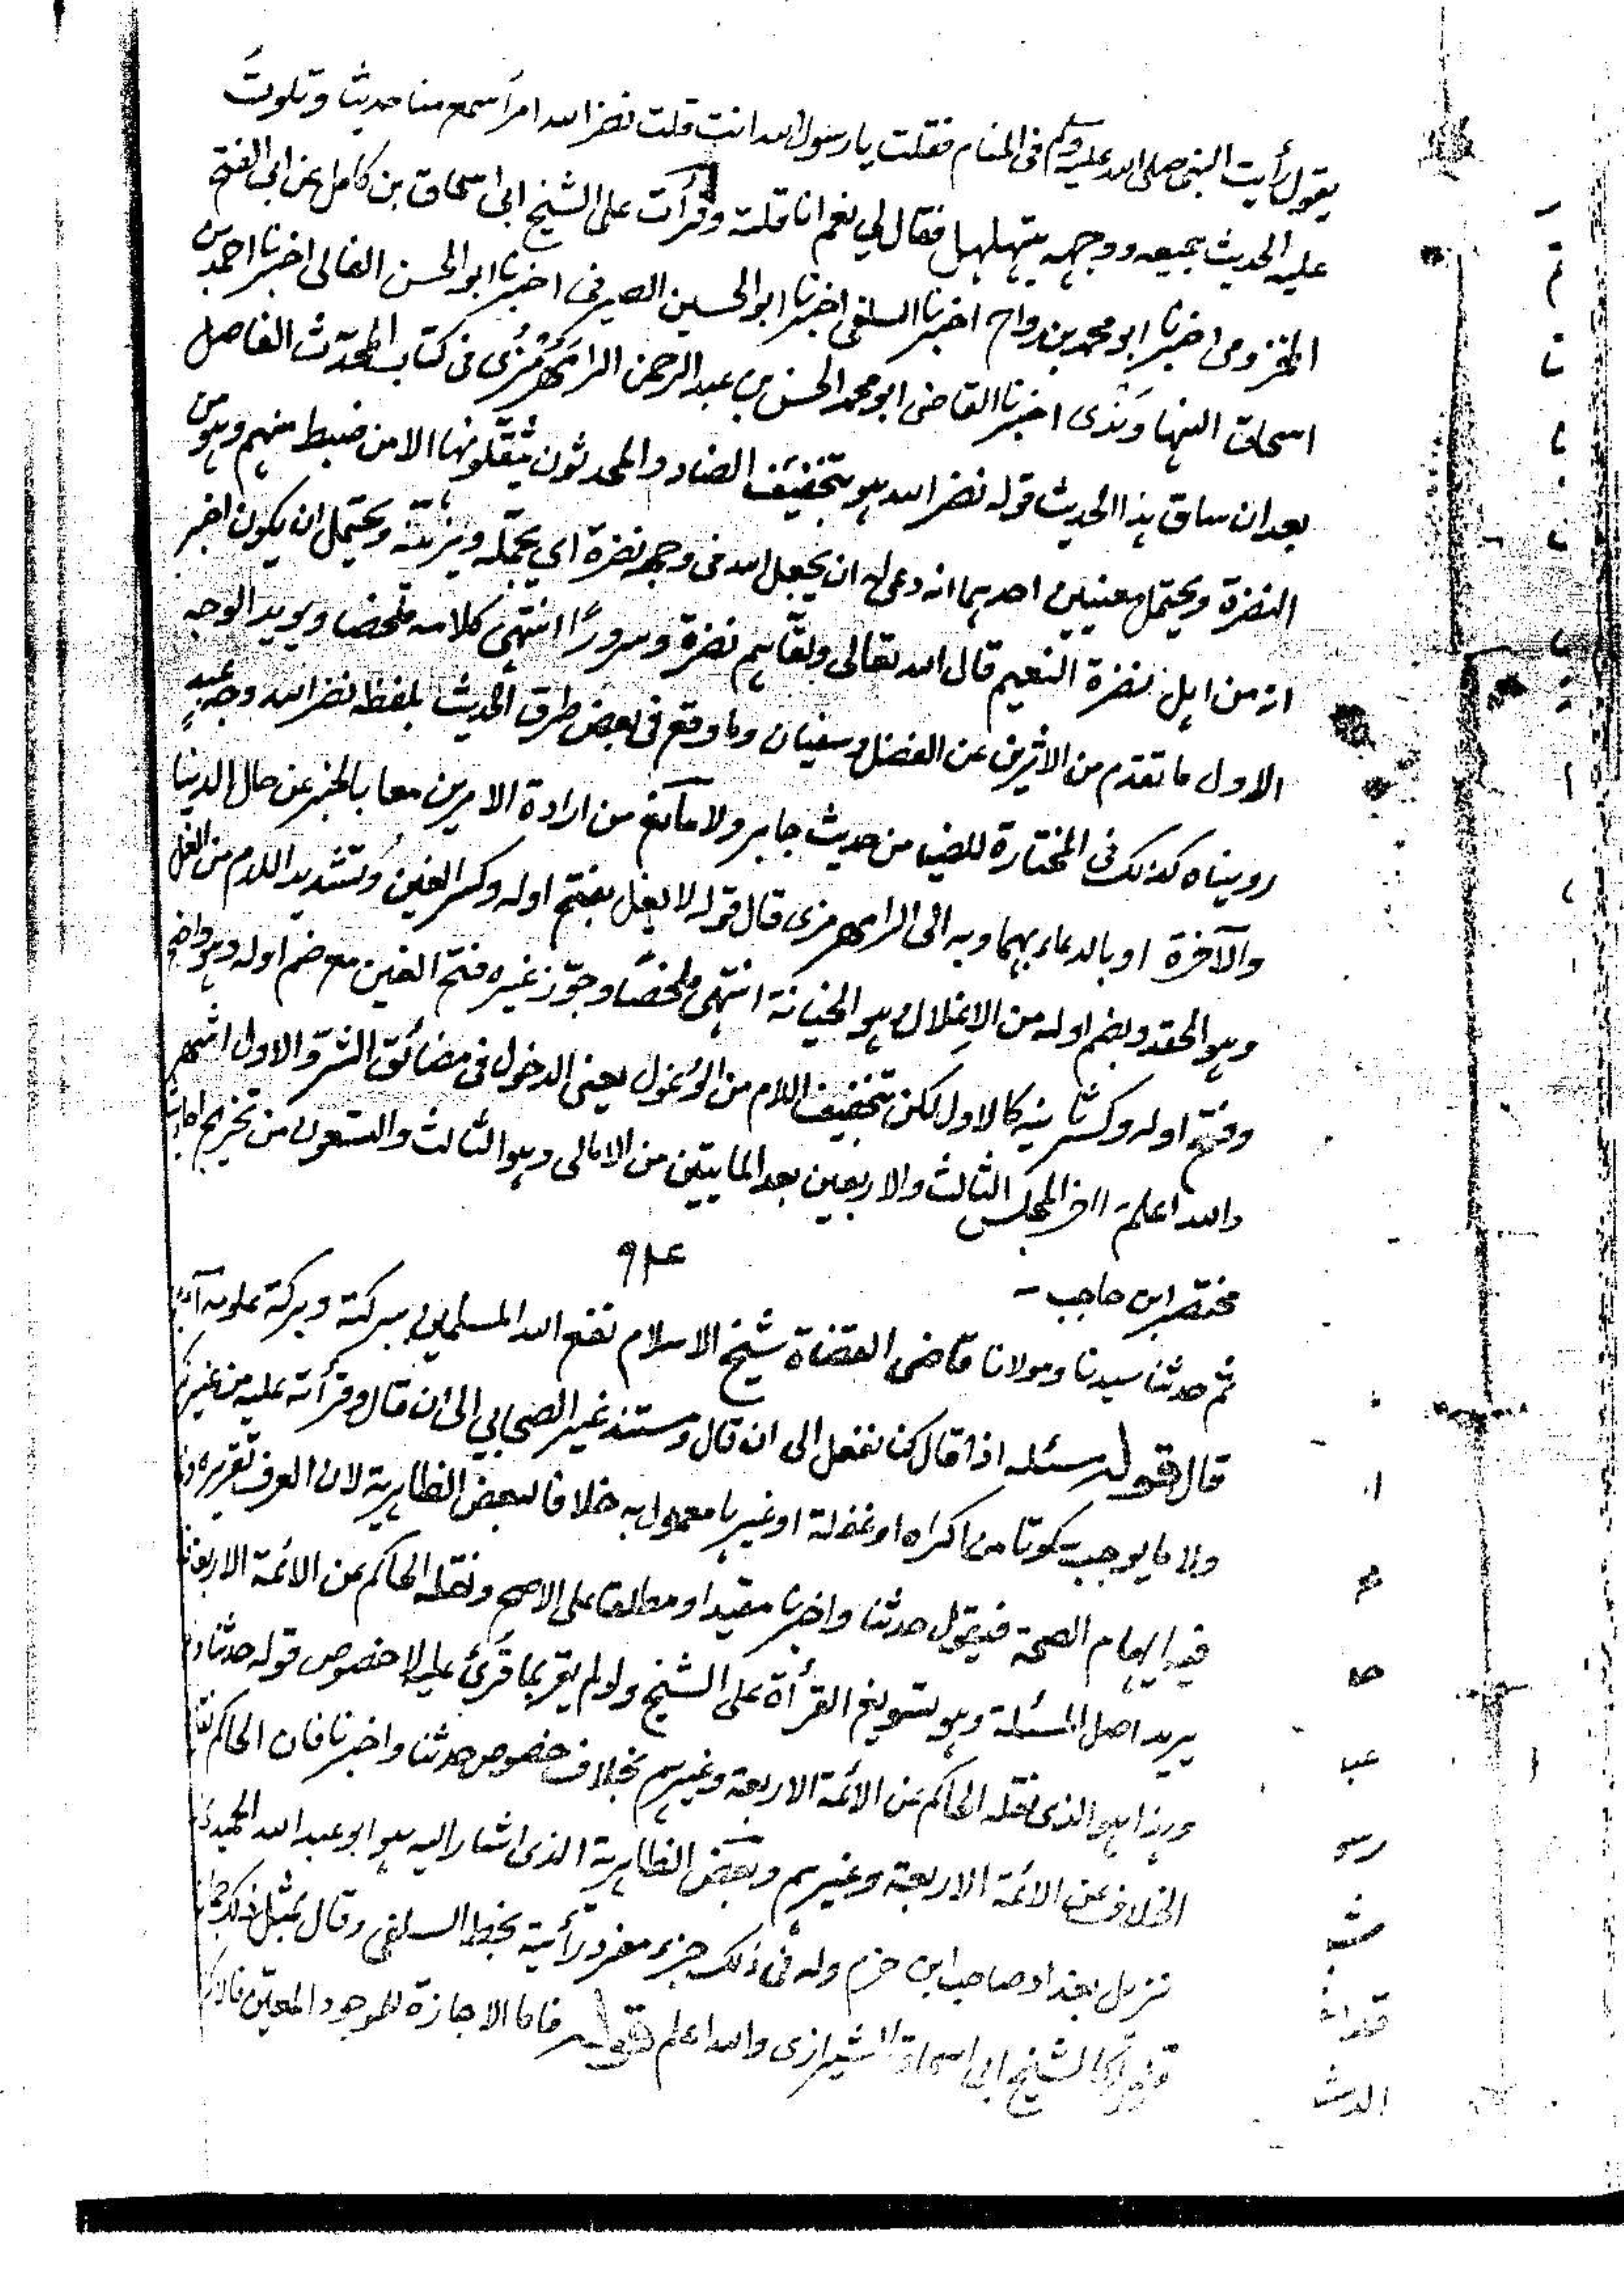 يقول رأيت النبي صلى الله عليه وسلم في المنام فقلت يا رسول الله انت قلت نضر الله امرأ سمع منا حديثا وتلوت
عليه الحديث جميعه ووجهه يتهلهل فقال لي نعم انا قلته وقرأت على الشيخ ابي اسحاق بن كامل عن ابي الفتح
المخزومي اخبرنا ابو محمد بن رواج اخبرنا السلفي اخبرنا ابو الحسين الصيرفي اخبرنا ابو الحسن الفالي اخبرنا احمد بن
اسحاق النهاوندي اخبرنا القاضي ابو محمد الحسن بن عبد الرحمن الرامهرمزي في كتاب المحدث الفاصل
بعد ان ساق هذا الحديث قوله نضر الله هو بتخفيف الضاد والمحدثون يثقلونها الا من ضبط منهم وهو من
النضرة ويحتمل معنيين احدهما انه دعى له ان يجعل الله في وجهه نضرة اي يجمله ويزينه ويحتمل ان يكون اخبر
انه من اهل نضرة النعيم قال الله تعالى ولقاهم نضرة وسرورا انتهى كلامه ملخصا ويويد الوجه
الاول ما تقدم من الاثرين عن الفضل وسفيان وما وقع في بعض طرق الحديث بلفظ نضر الله وجه عبد
رويناه كذلك في المختارة للضيا من حديث جابر ولا مانع من ارادة الامرين معا بالخبر عن حال الدنيا
والآخرة او بالدعاء بهما وبه الى الرامهرمزي قال قوله لا يغل بفتح اوله وكسر الغين وتشديد اللام من الغل
وهو الحقد وبضم اوله من الاغلال وهو الخيانة انتهى ملخصا وجوز غيره فتح الغين مع ضم اوله وهو واضح
وفتح اوله وكسر ثانيه كالاول لكن بتخفيف اللام من الوغول يعني الدخول في مضائق الشر والاول اشهر
والله اعلم آخر المجلس الثالث والاربعين بعد المايتين من الامالي وهو الثالث والتسعون من تخريج احاديث
مختصر ابن حاجب
٩٤
ثم حدثنا سيدنا ومولانا قاضي القضاة شيخ الاسلام نفع الله المسلمين ببركته وبركة علومه آمين
قال قوله مسئله اذا قال كنا نفعل الى ان قال ومستند غير الصحابي الى ان قال وقرأته عليه من غير نكير
ولا ما يوجب سكوتا من اكراه او غفلة او غيرها معمول به خلافا لبعض الظاهرية لان العرف تقريره و
فيه ايهام الصحة فيقول حدثنا واخبرنا مقيدا ومطلقا على الاصح ونقله الحاكم عن الائمة الاربعة
يريد اصل المسئلة وهو تسويغ القرأة على الشيخ ولو لم يقر بما قرئ عليه لا خصوص قوله حدثنا و
وهذا هو الذي نقله الحاكم عن الائمة الاربعة وغيرهم بخلاف خصوص حدثنا واخبرنا فان الحاكم نقل
الخلاف عن الائمة الاربعة وغيرهم وبعض الظاهرية الذي اشار اليه هو ابو عبد الله الحميدي
نزيل بغداد صاحب ابن حزم وله في ذلك جزء مفرد رأيته بخط السلفي وقال بمثل ذلك
الشيخ ابي اسحاق الشيرازي والله اعلم قوله فاما الاجازة للموجود المعين